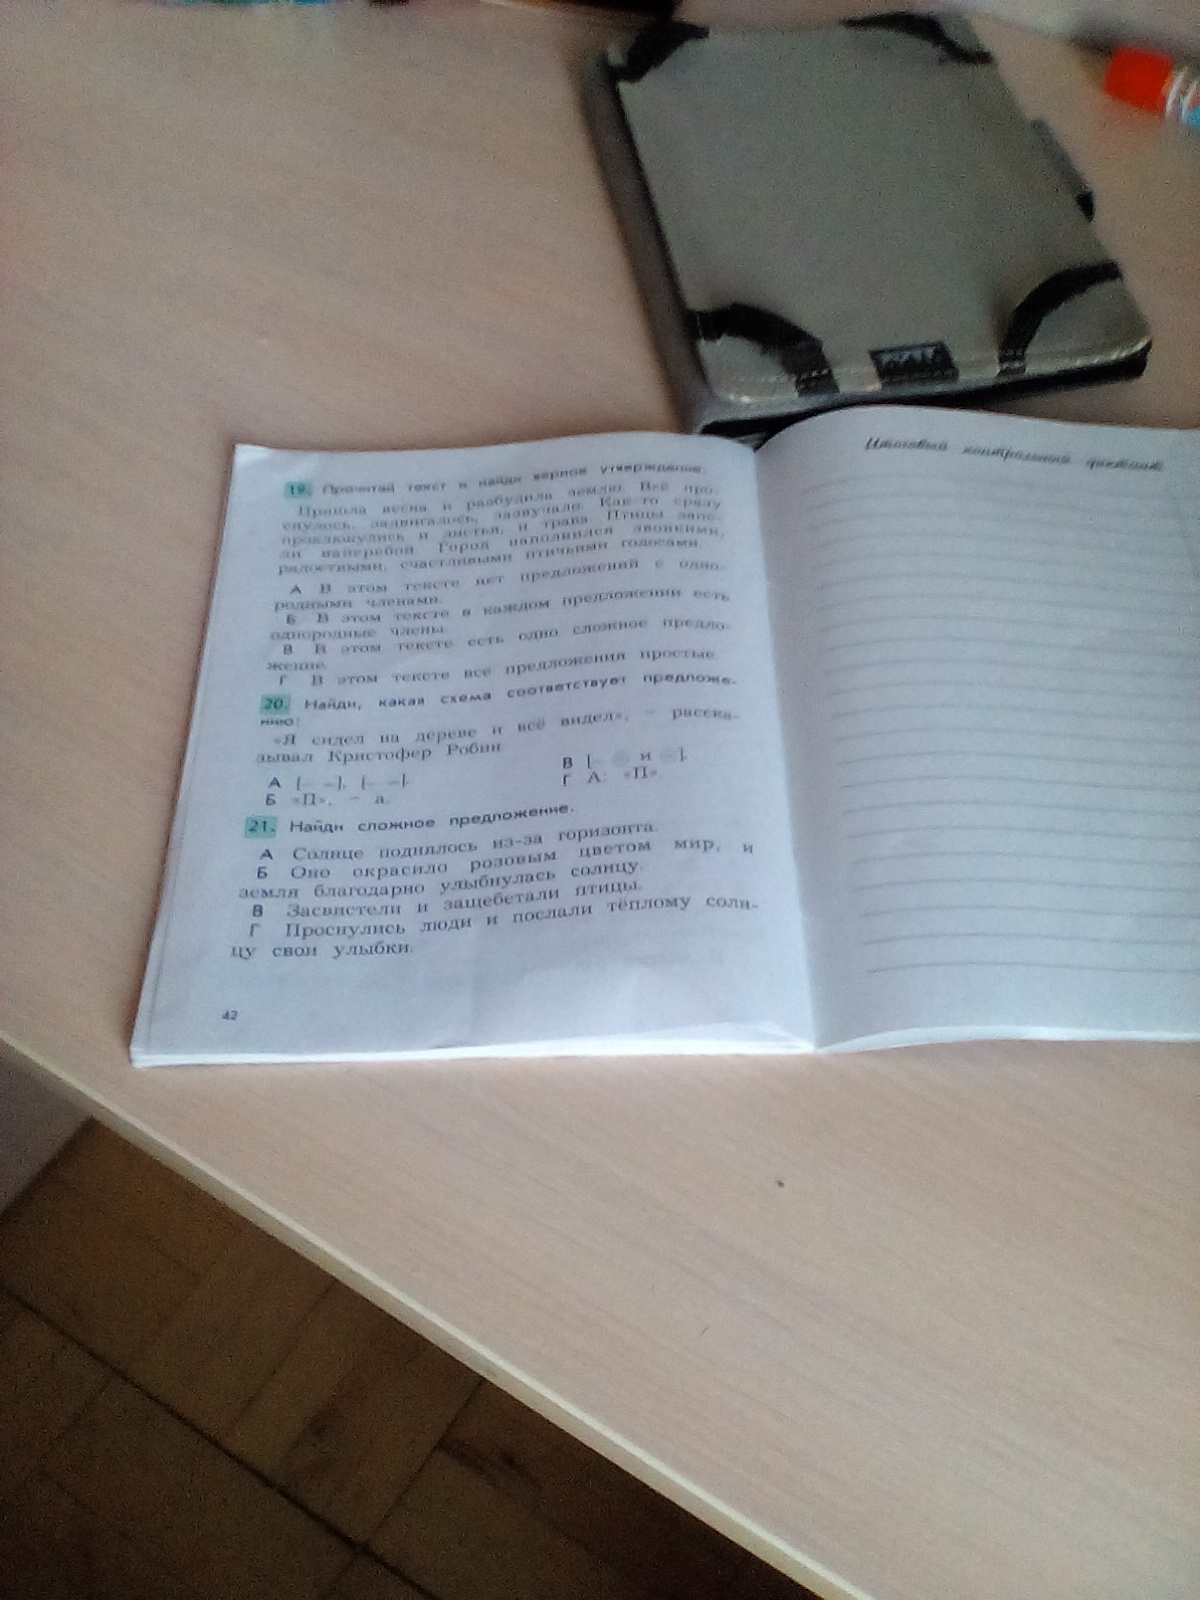 19. Прочитай текст и найди верное утверждение.
Пришла весна и разбудила землю. Всё про-
снулось, задвигалось, зазвучало. Как-то сразу
проклюнулись и листья, и трава. Птицы запе-
ли наперебой. Город наполнился звонкими,
радостными, счастливыми птичьими голосами.
А В этом тексте нет предложений с одно-
родными членами.
Б В этом тексте в каждом предложении есть
однородные члены.
В В этом тексте есть одно сложное предло-
жение.
Г В этом тексте все предложения простые.
20. Найди, какая схема соответствует предложе-
нию:
«Я сидел на дереве и всё видел», – расска-
зывал Кристофер Робин.
А [– =], [– =].
Б «П», – а.
В [– и ].
Г А: «П».
21. Найди сложное предложение.
А Солнце поднялось из-за горизонта.
Б Оно окрасило розовым цветом мир, и
земля благодарно улыбнулась солнцу.
В Засвистели и защебетали птицы.
Г Проснулись люди и послали тёплому солн-
цу свои улыбки.
42
Итоговый контрольный диктант